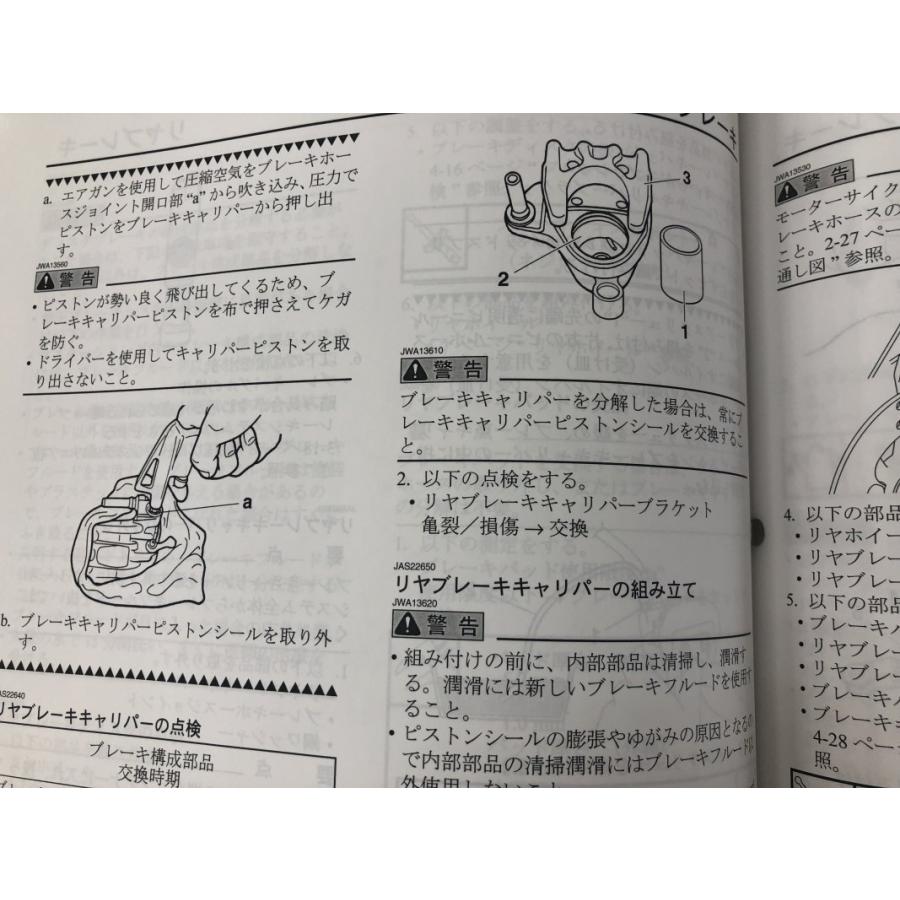 a. エアガンを使用して圧縮空気をブレーキホー
スジョイント開口部“a”から吹き込み、圧力で
ピストンをブレーキキャリパーから押し出
す。
JWA13560
警告
・ピストンが勢い良く飛び出してくるため、ブ
レーキキャリパーピストンを布で押さえてケガ
を防ぐ。
・ドライバーを使用してキャリパーピストンを取
り出さないこと。
a
b. ブレーキキャリパーピストンシールを取り外
す。
JAS22640
リヤブレーキキャリパーの点検
ブレーキ構成部品
交換時期
ブレーキ
3
2
1
JWA13610
警告
ブレーキキャリパーを分解した場合は、常にブ
レーキキャリパーピストンシールを交換するこ
と。
2. 以下の点検をする。
・リヤブレーキキャリパーブラケット
亀裂／損傷 → 交換
JAS22650
リヤブレーキキャリパーの組み立て
JWA13620
警告
・組み付けの前に、内部部品は清掃し、潤滑す
る。潤滑には新しいブレーキフルードを使用す
ること。
・ピストンシールの膨張やゆがみの原因となるの
で内部部品の清掃潤滑にはブレーキフルード以
外使用しないこと。
JWA13530
警告
モーターサイク
レーキホースの
こと。2-27 ペー
通し図”参照。
4. 以下の部品
・リヤホイー
・リヤブレー
・リヤブレー
5. 以下の部品
・ブレーキパ
・リヤブレー
・リヤブレー
・ブレーキパ
・ブレーキキ
4-28 ペー
照。